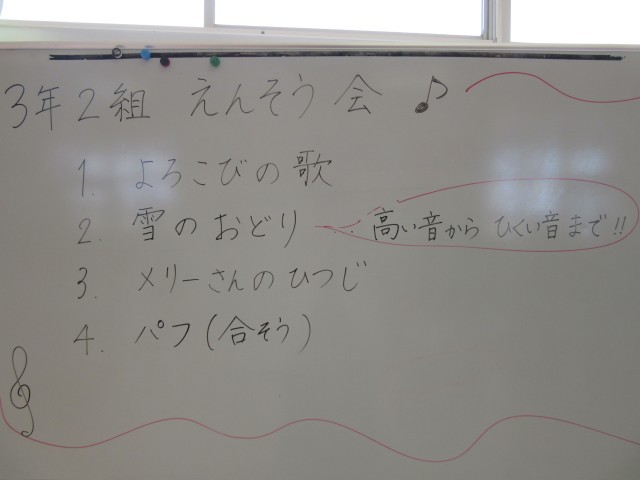 3年2組 えんそう会♪
1. よろこびの歌
2. 雪のおどり 高い音から ひくい音まで!!
3. メリーさんのひつじ
4. パフ(合そう)